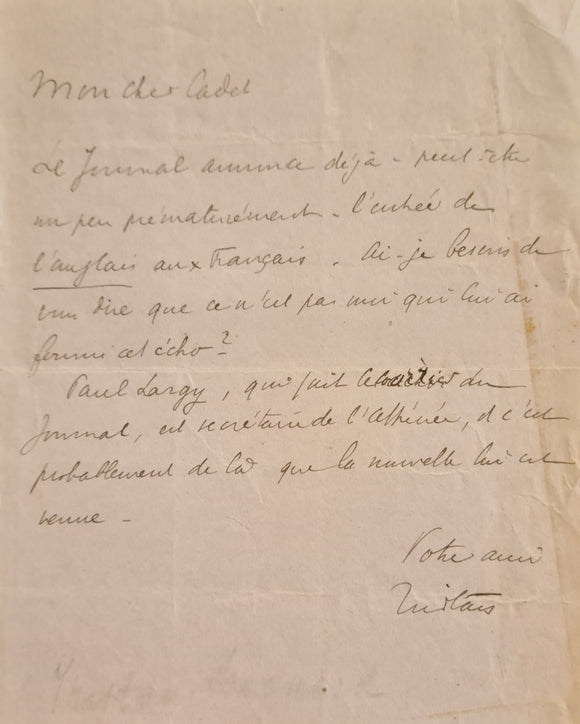 Mon cher Cadet
Le Journal annonce déjà - peut-être
un peu prématurément - l'entrée de
l'anglais aux Français. Ai-je besoin de
vous dire que ce n'est pas moi qui lui ai
fourni cet écho?
Paul Largy, qui fait le du
Journal, est secrétaire de l'athénée, et c'est
probablement de là que la nouvelle lui est
venue -
Votre ami
Tristan